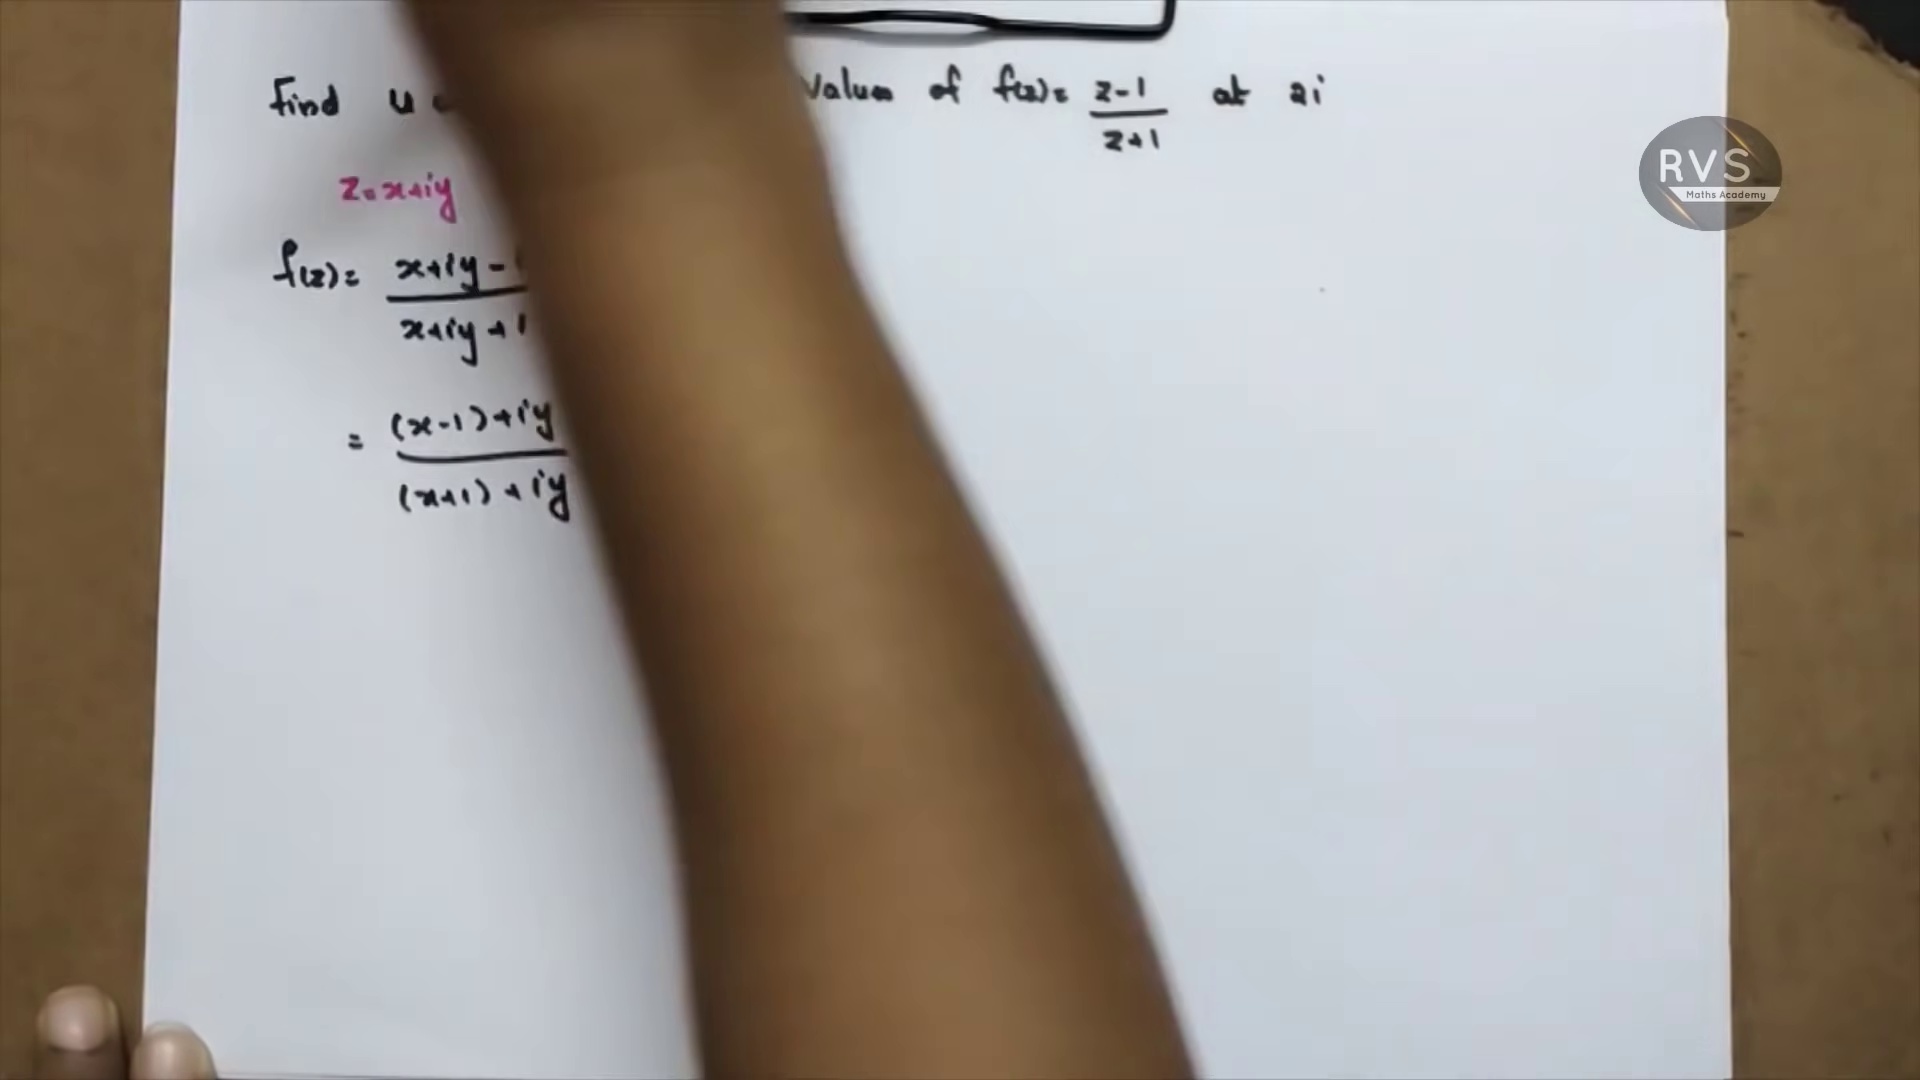 Find u values of f(z) = z-1 / z+1 at 2i
z = x+iy
f(z) = x+iy - / x+iy+1
= (x-1)+iy / (x+1)+iy
RVS
Maths Academy